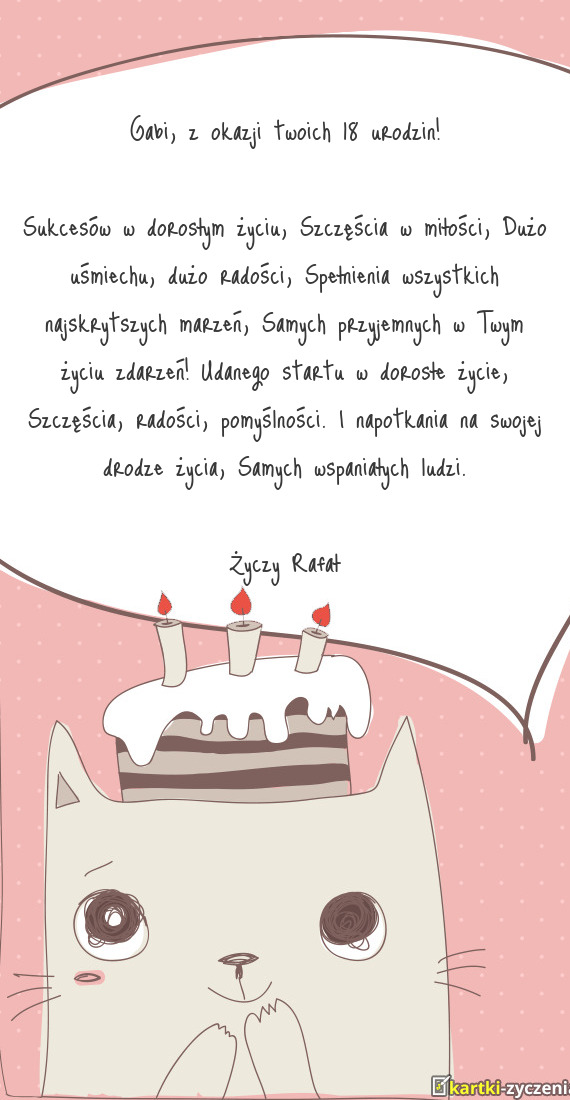 Gabi, z okazji twoich 18 urodzin!
Sukcesów w dorosłym życiu, Szczęścia w miłości, Dużo
uśmiechu, dużo radości, Spełnienia wszystkich
najskrytszych marzeń, Samych przyjemnych w Twym
życiu zdarzeń! Udanego startu w dorosłe życie,
Szczęścia, radości, pomyślności. I napotkania na swojej
drodze życia, Samych wspaniałych ludzi.
Życzy Rafał
kartki-zyczeni